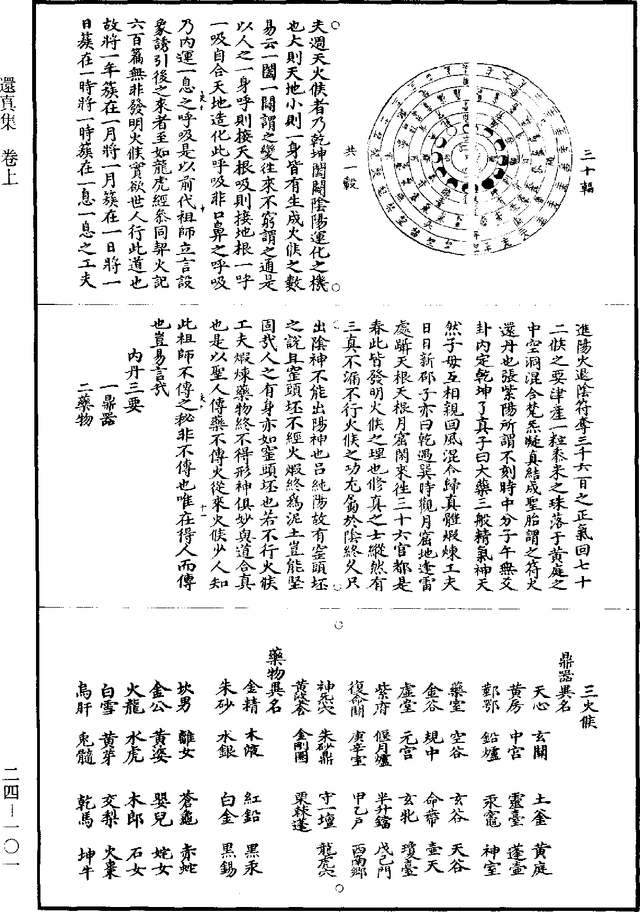 還真集　卷上
二四—一〇一
三十輻
共一轂
夫週天火候者乃乾坤闔闢陰陽運化之機
也大則天地小則一身皆有生成火候之數
易云一闔一闢謂之變往來不窮謂之通是
以人之一身呼則接天根吸則接地根一呼
一吸自合天地造化此呼吸非口鼻之呼吸
乃內運一息之呼吸是以前代祖師立言設
象誘引後之來者至如龍虎經參同契火記
六百篇無非發明火候實欲世人行此道也
故將一年簇在一月將一月簇在一日將一
日簇在一時將一時簇在一息一息之工夫
進陽火退陰符奪三千六百之正氣回七十
二候之要津產一粒黍米之珠落于黃庭之
中空洞混合梵炁凝真結成聖胎謂之符火
還丹也張紫陽所謂不刻時中分子午無爻
卦內定乾坤了真子曰大藥三般精氣神天
然子母互相親回風混合歸真體煅煉工夫
日日新邵子亦曰乾遇巽時觀月窟地逢雷
處躡天根天根月窟閑來往三十六宮都是
春此皆發明火候之理也修真之士縱然有
三真不漏不行火候之功尤屬於陰終久只
出陰神不能出陽神也呂純陽故有窑頭坯
之說且窑頭坯不經火煅終為泥土豈能堅
固哉人之有身亦如窑頭坯也若不行火候
工夫煅煉藥物終不得形神俱妙與道合真
也是以聖人傳藥不傳火從來火候少人知
此祖師不傳之秘非不傳也唯在得人而傳
也豈易言哉
內丹三要
一鼎器
二藥物
三火候
鼎器異名
天心　玄關　土釜　黃庭
黃房　中宮　靈臺　蓬壺
鄞鄂　鉛爐　汞竈　神室
藥室　空谷　玄谷　天谷
金谷　規中　命蒂　壺天
虛室　元宮　玄牝　瓊臺
紫府　偃月爐　半升鐺　戊己門
復命關　庚辛室　甲乙戶　西南鄉
神炁穴　朱砂鼎　守一壇　龍虎穴
黃婆舍　金剛圈　栗棘蓬
藥物異名
金精　木液　紅鉛　黑汞
朱砂　水銀　白金　黑錫
坎男　離女　蒼龜　赤蛇
金公　黃婆　嬰兒　姹女
火龍　水虎　木郎　石女
白雪　黃芽　交梨　火棗
烏肝　兎髓　乾馬　坤牛